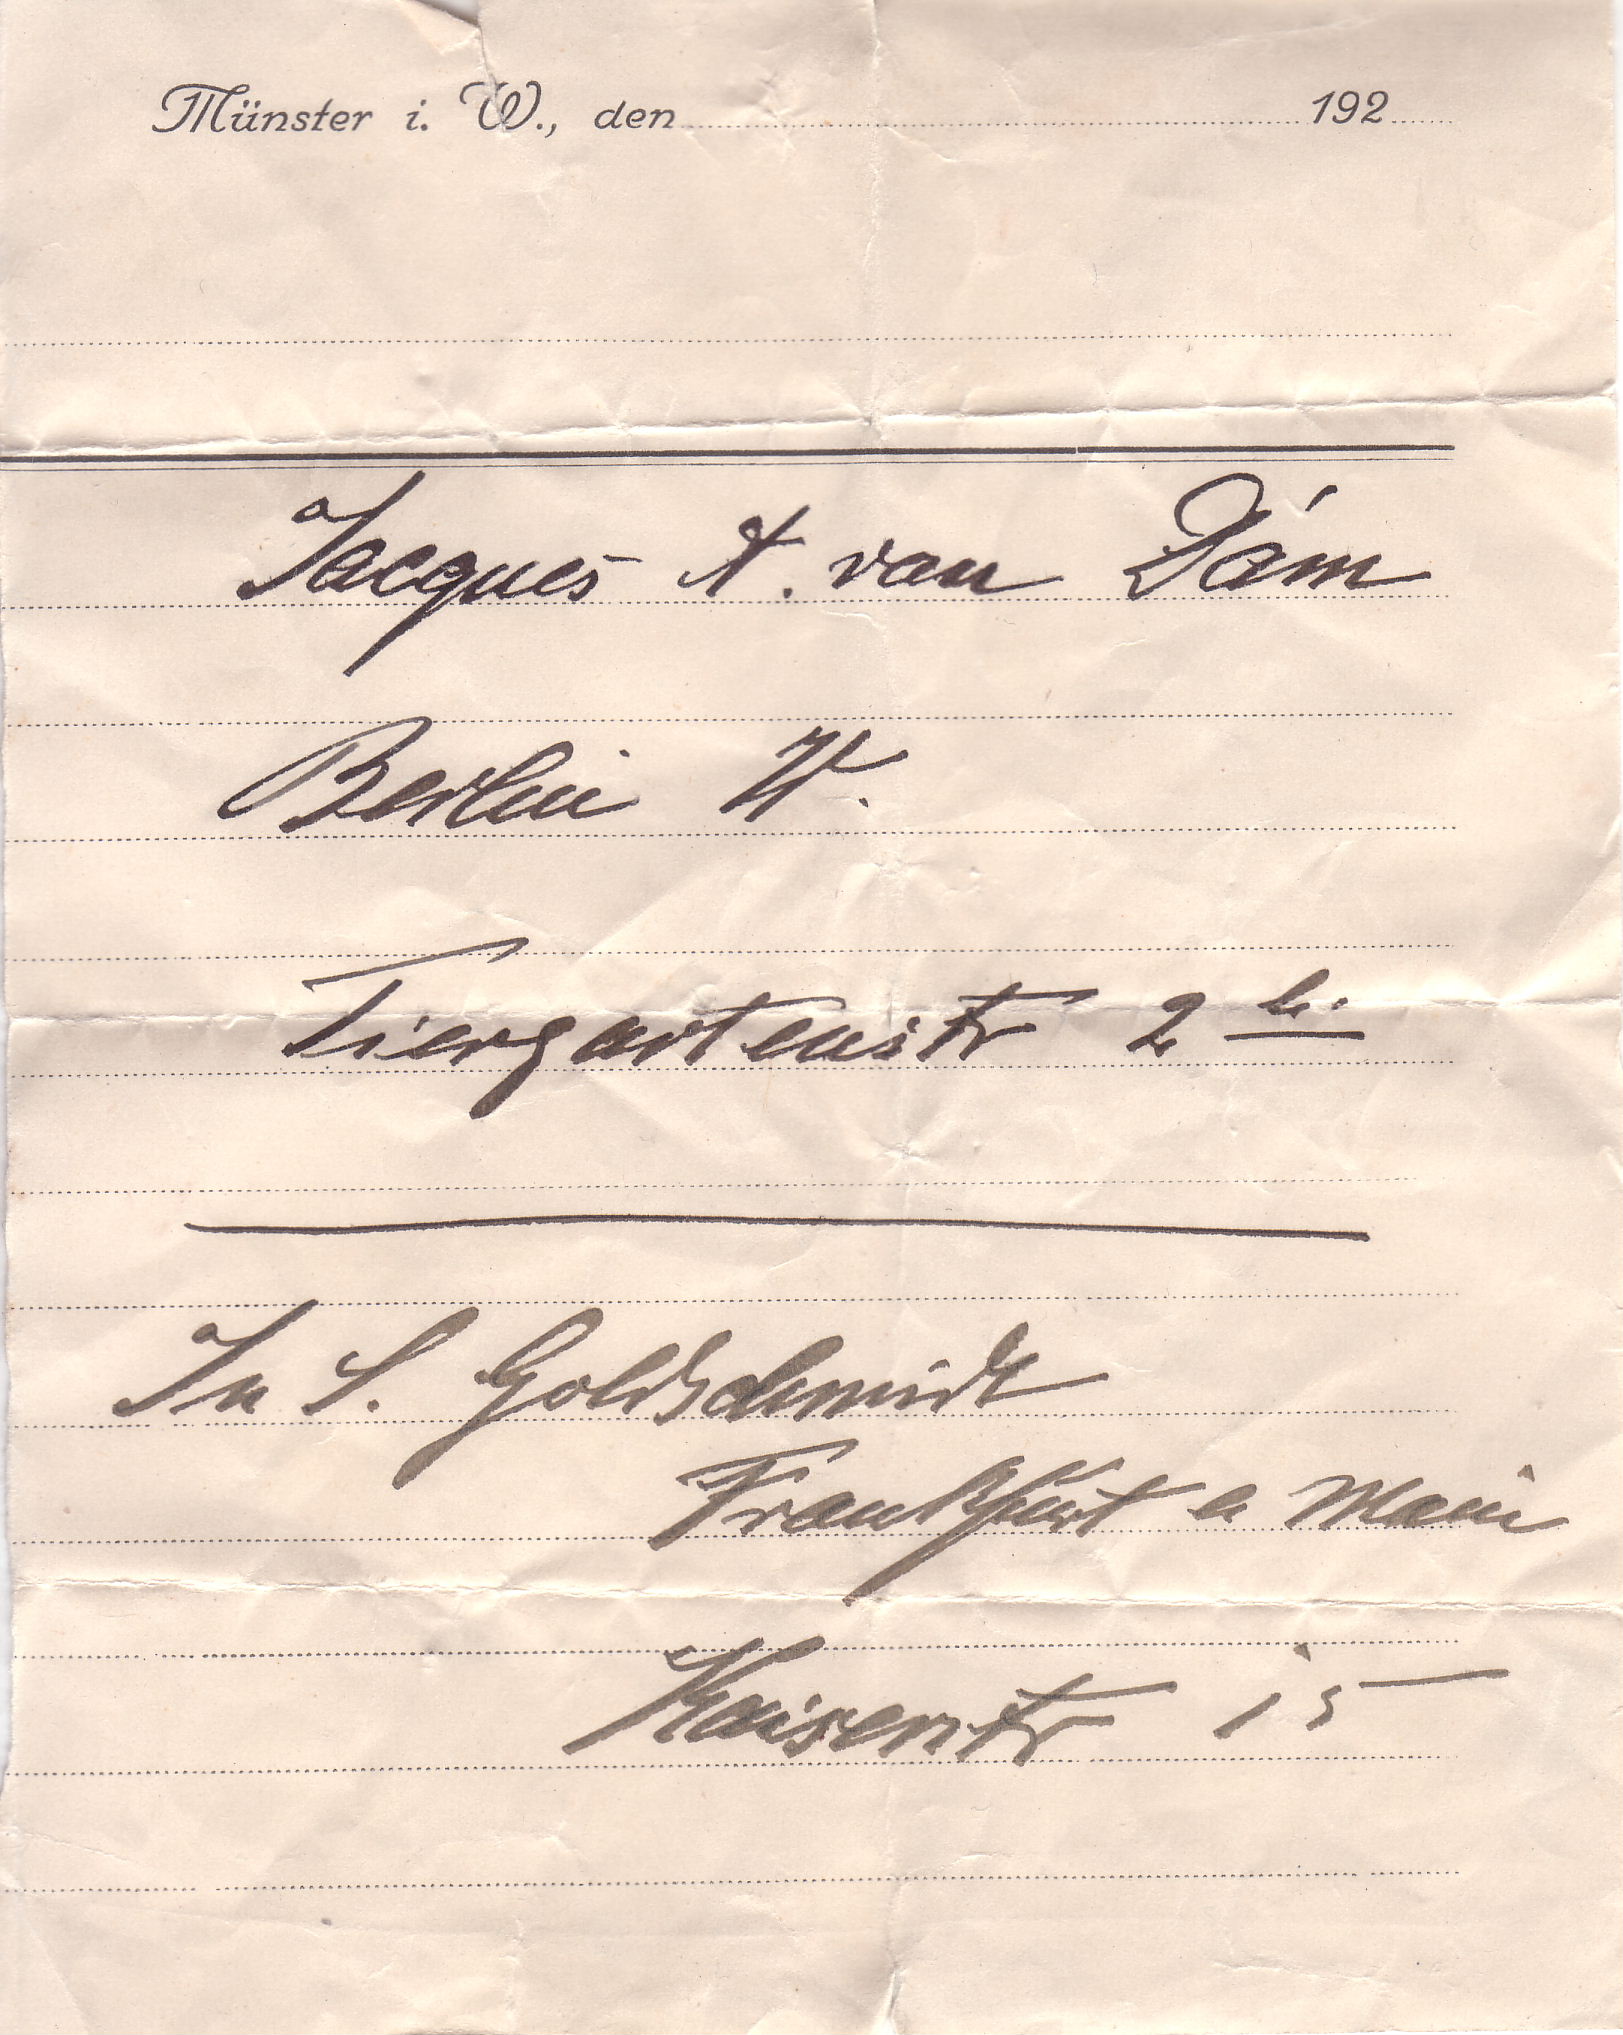 Münster i. W., den 192
Jacques A. van Dám
Berlin W.
Tiergartenstr 2 b.
S. Goldschmidt
Frankfurt a Main
Kaiserstr 15